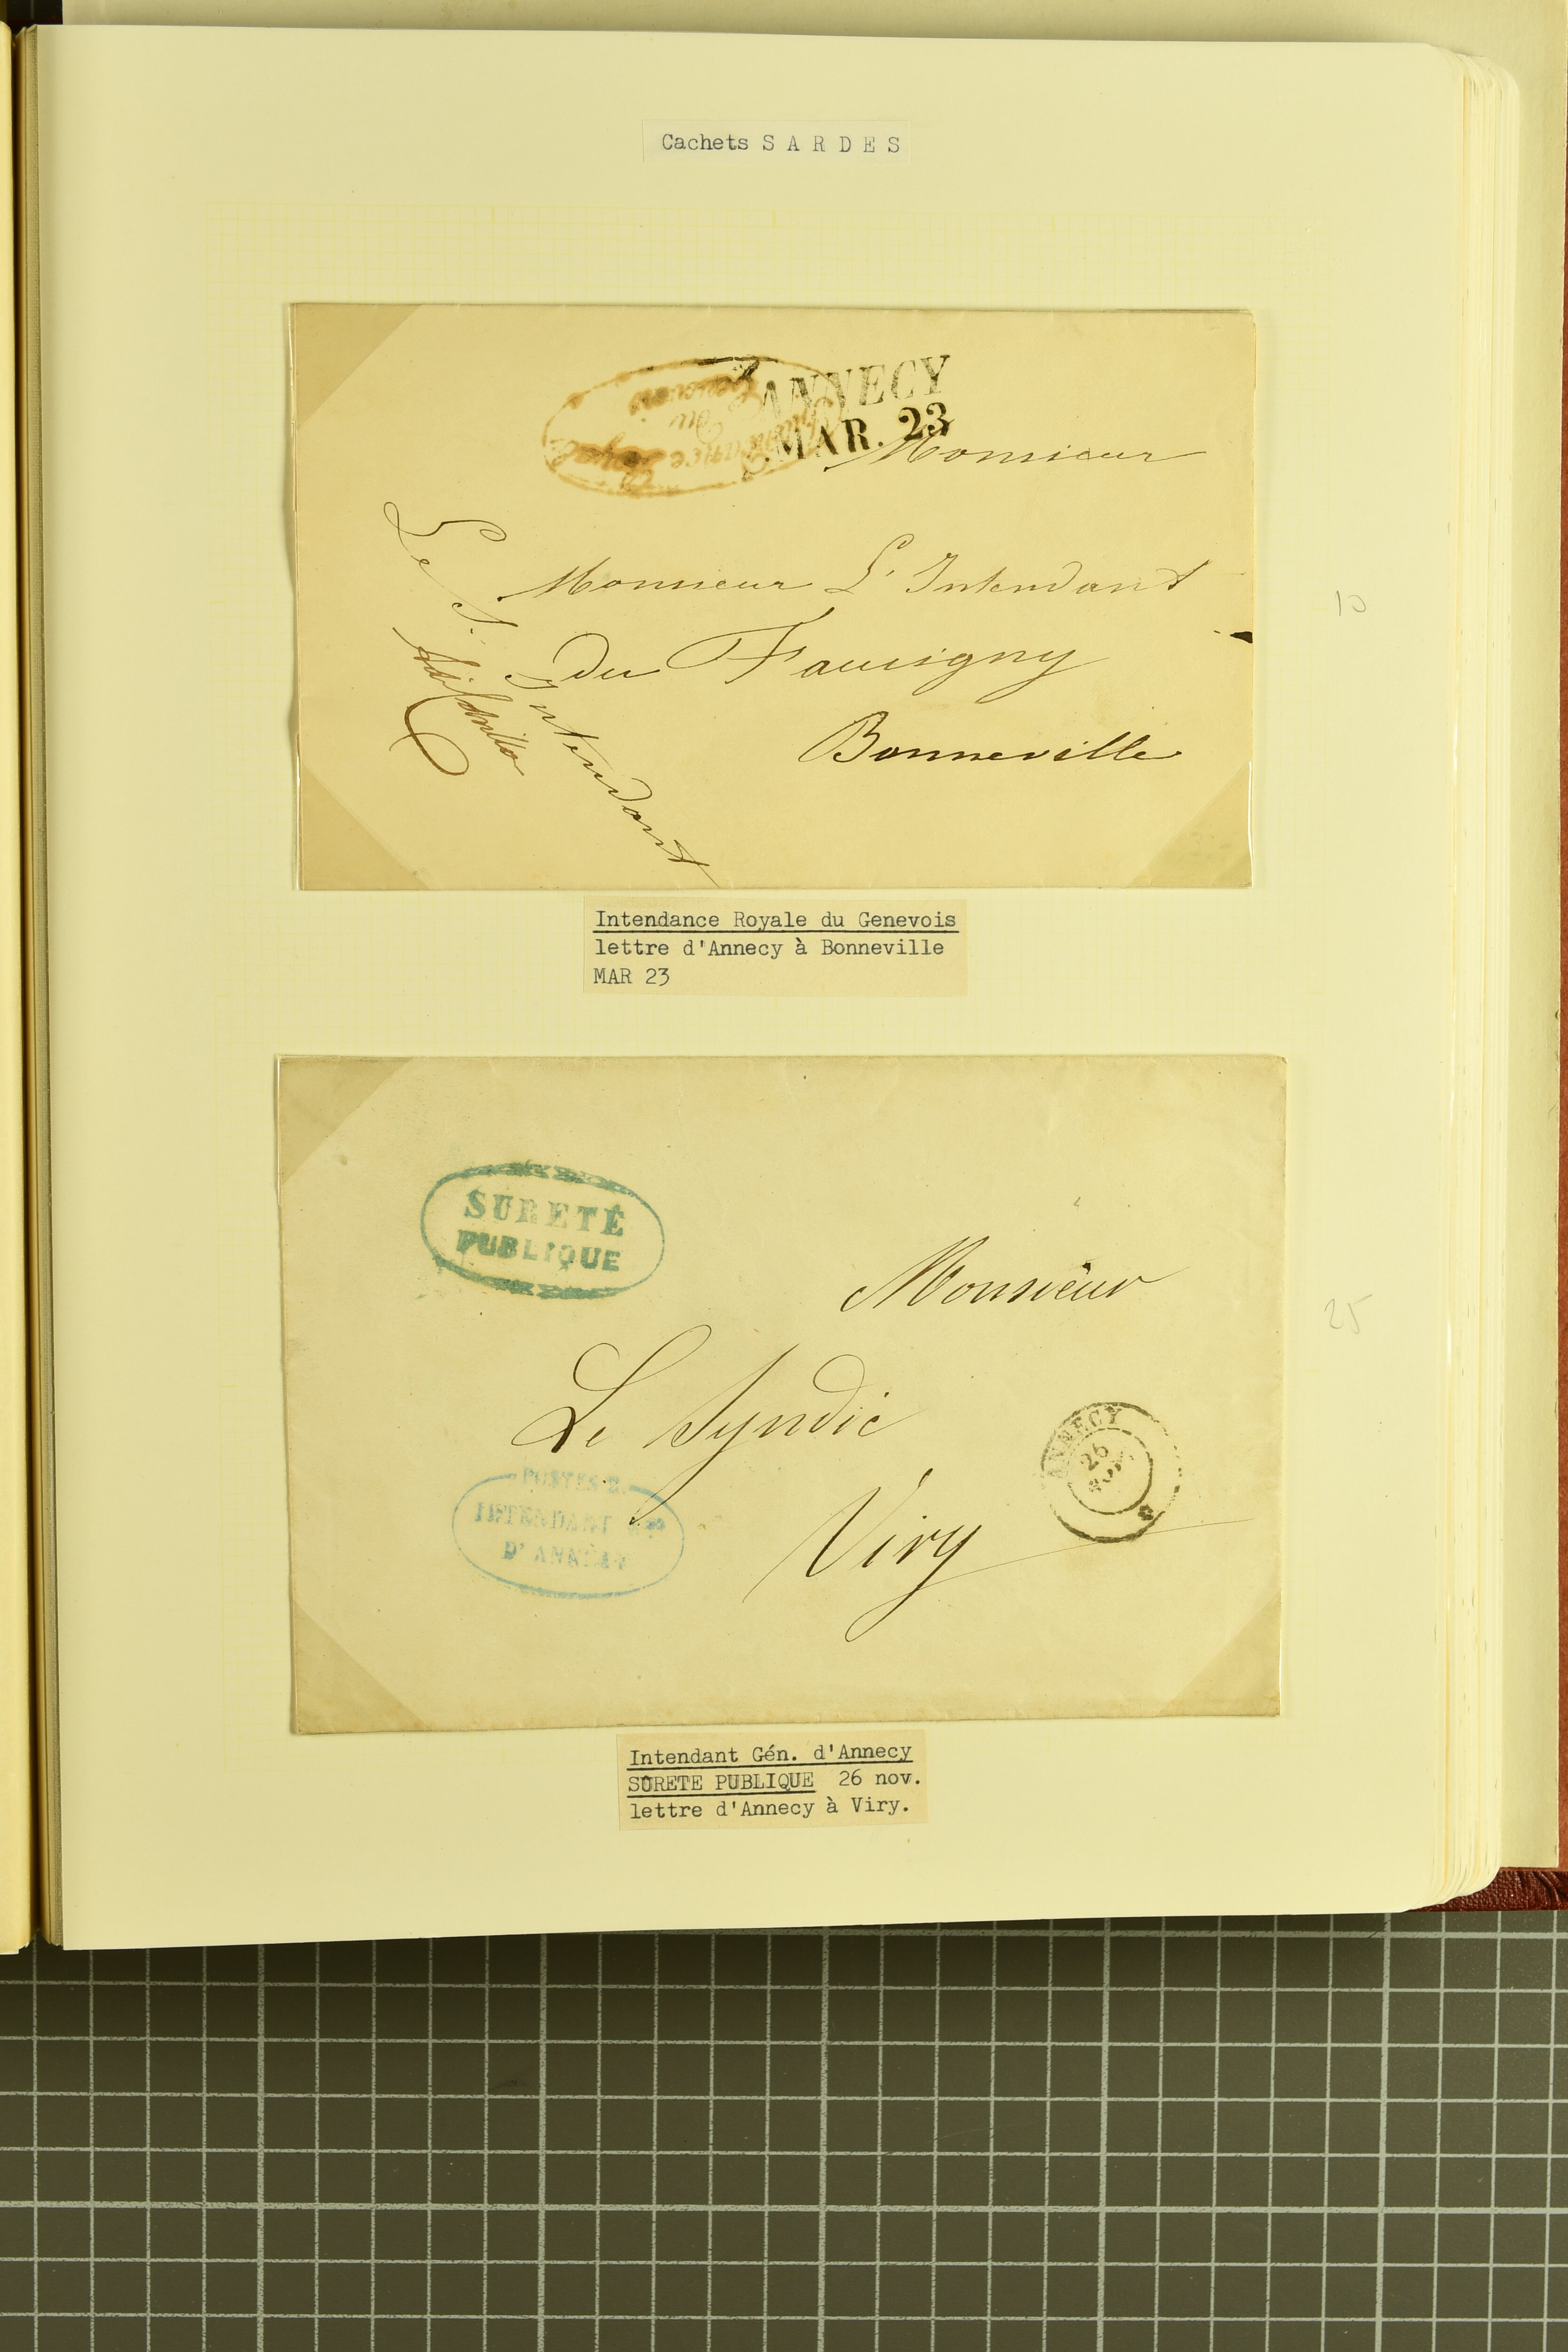 Cachets S A R D E S
ANNECY
MAR. 23
Monsieur
Monsieur L'Intendant
du Faucigny
Bonneville
Le
Intendant
10
Intendance Royale du Genevois
lettre d'Annecy à Bonneville
MAR 23
SURETÉ
PUBLIQUE
Monsieur
Le Syndic
Viry
ANNECY
26
NOV.
POSTES
INTENDANT
D'ANNECY
25
Intendant Gén. d'Annecy
SÛRETE PUBLIQUE 26 nov.
lettre d'Annecy à Viry.